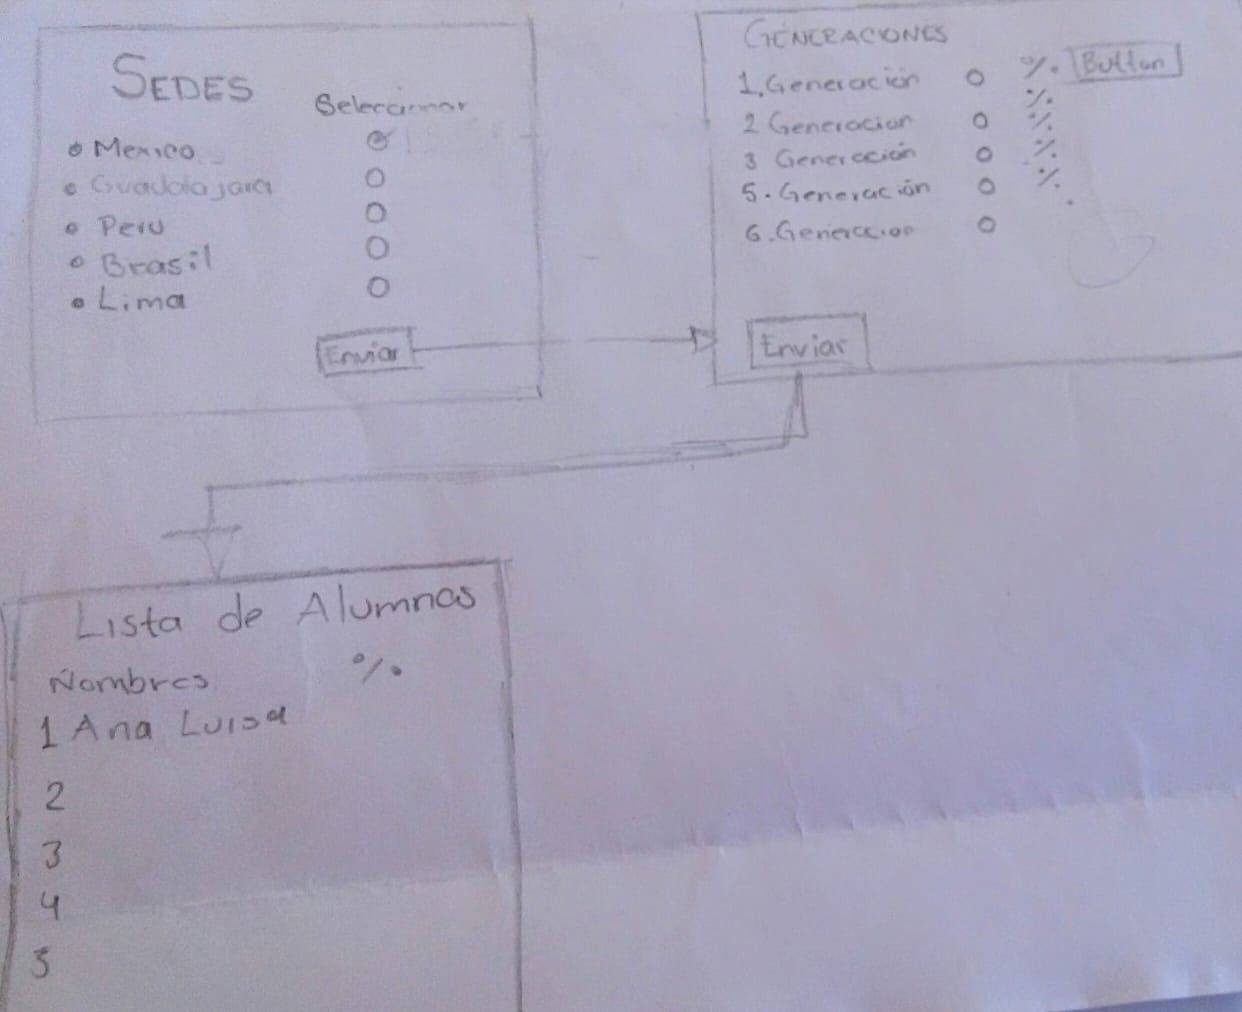 SEDES
Seleccionar
Mexico
Guadalajara
Peru
Brasil
Lima
Enviar
GENERACIONES
1. Generación %. Button
%.
2 Generacion %.
3 Generación %.
5. Generación %.
6. Generaccion
Enviar
Lista de Alumnas
Nombres %
1 Ana Luisa
2
3
4
5